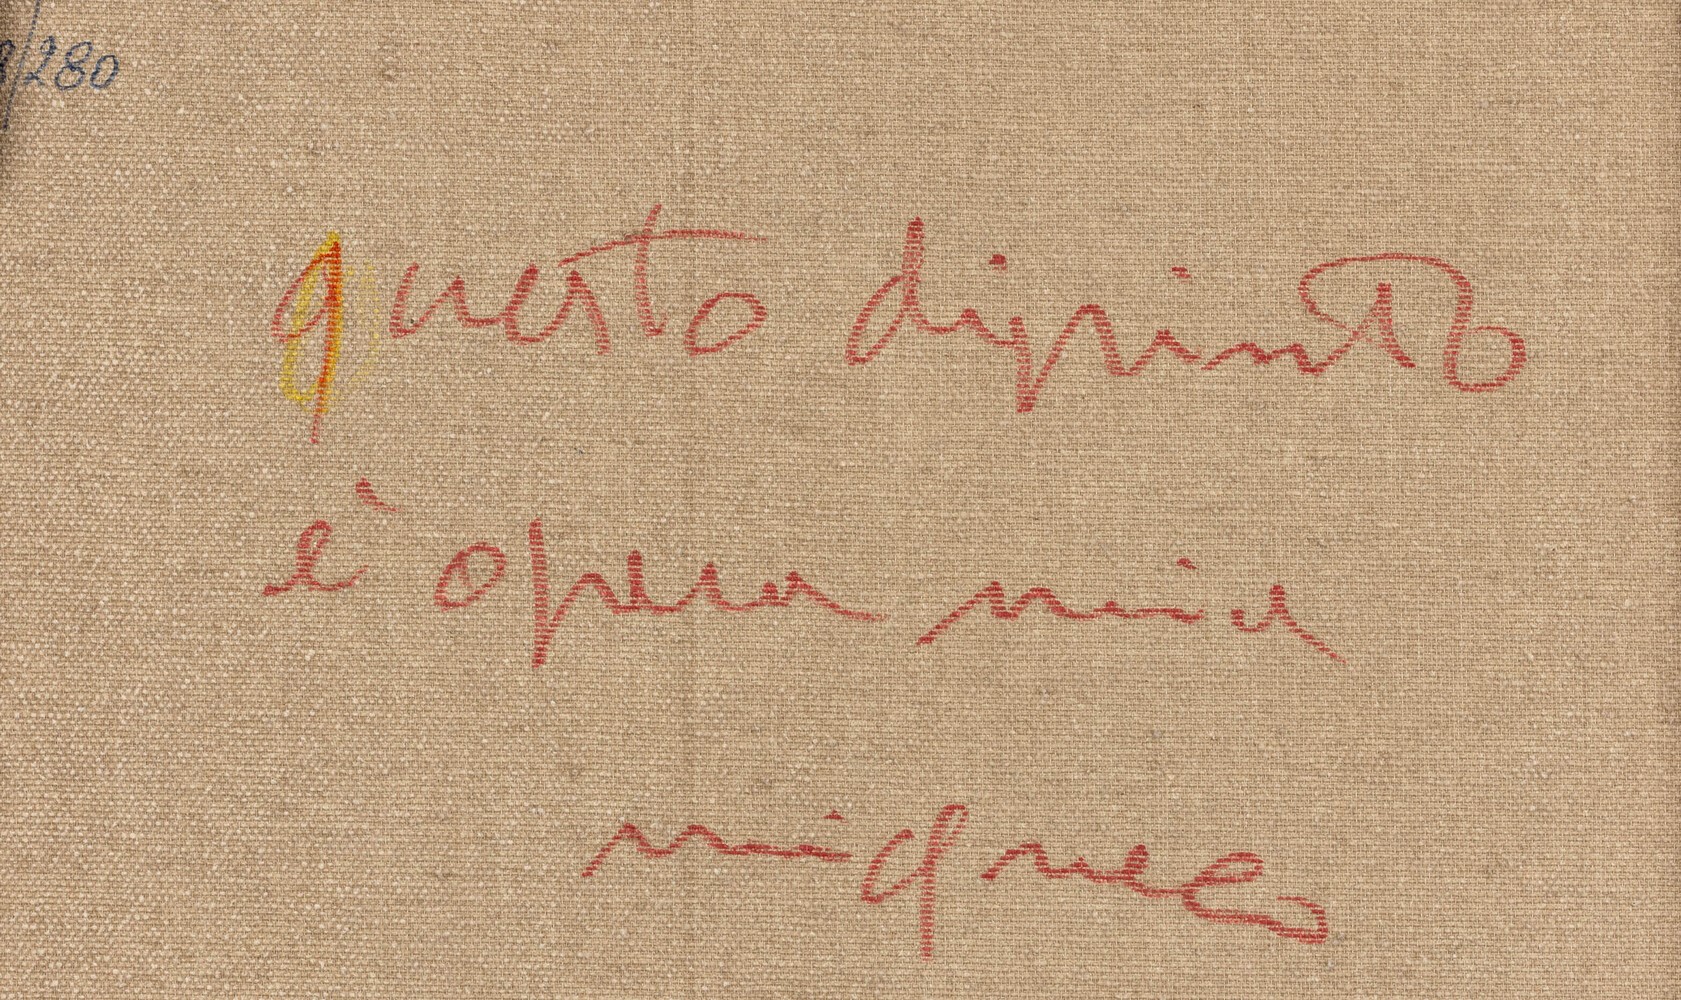 /280
questo dipinto
è opera mia
migneco